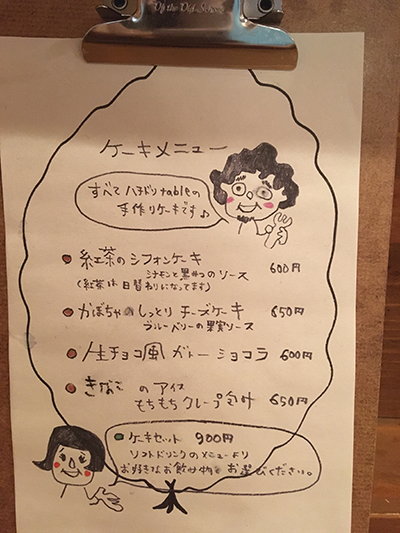 Of the Old School
ケーキメニュー
すべてハチドリtableの
手作りケーキです♪
紅茶のシフォンケーキ 600円
シナモンと黒みつのソース
(紅茶は日替わりになってます)
かぼちゃのしっとりチーズケーキ 650円
ブルーベリーの果実ソース
生チョコ風ガトーショコラ 600円
きなこのアイス
もちもちクレープ包み 650円
ケーキセット 900円
ソフトドリンクのメニューより
お好きなお飲み物をお選びください。